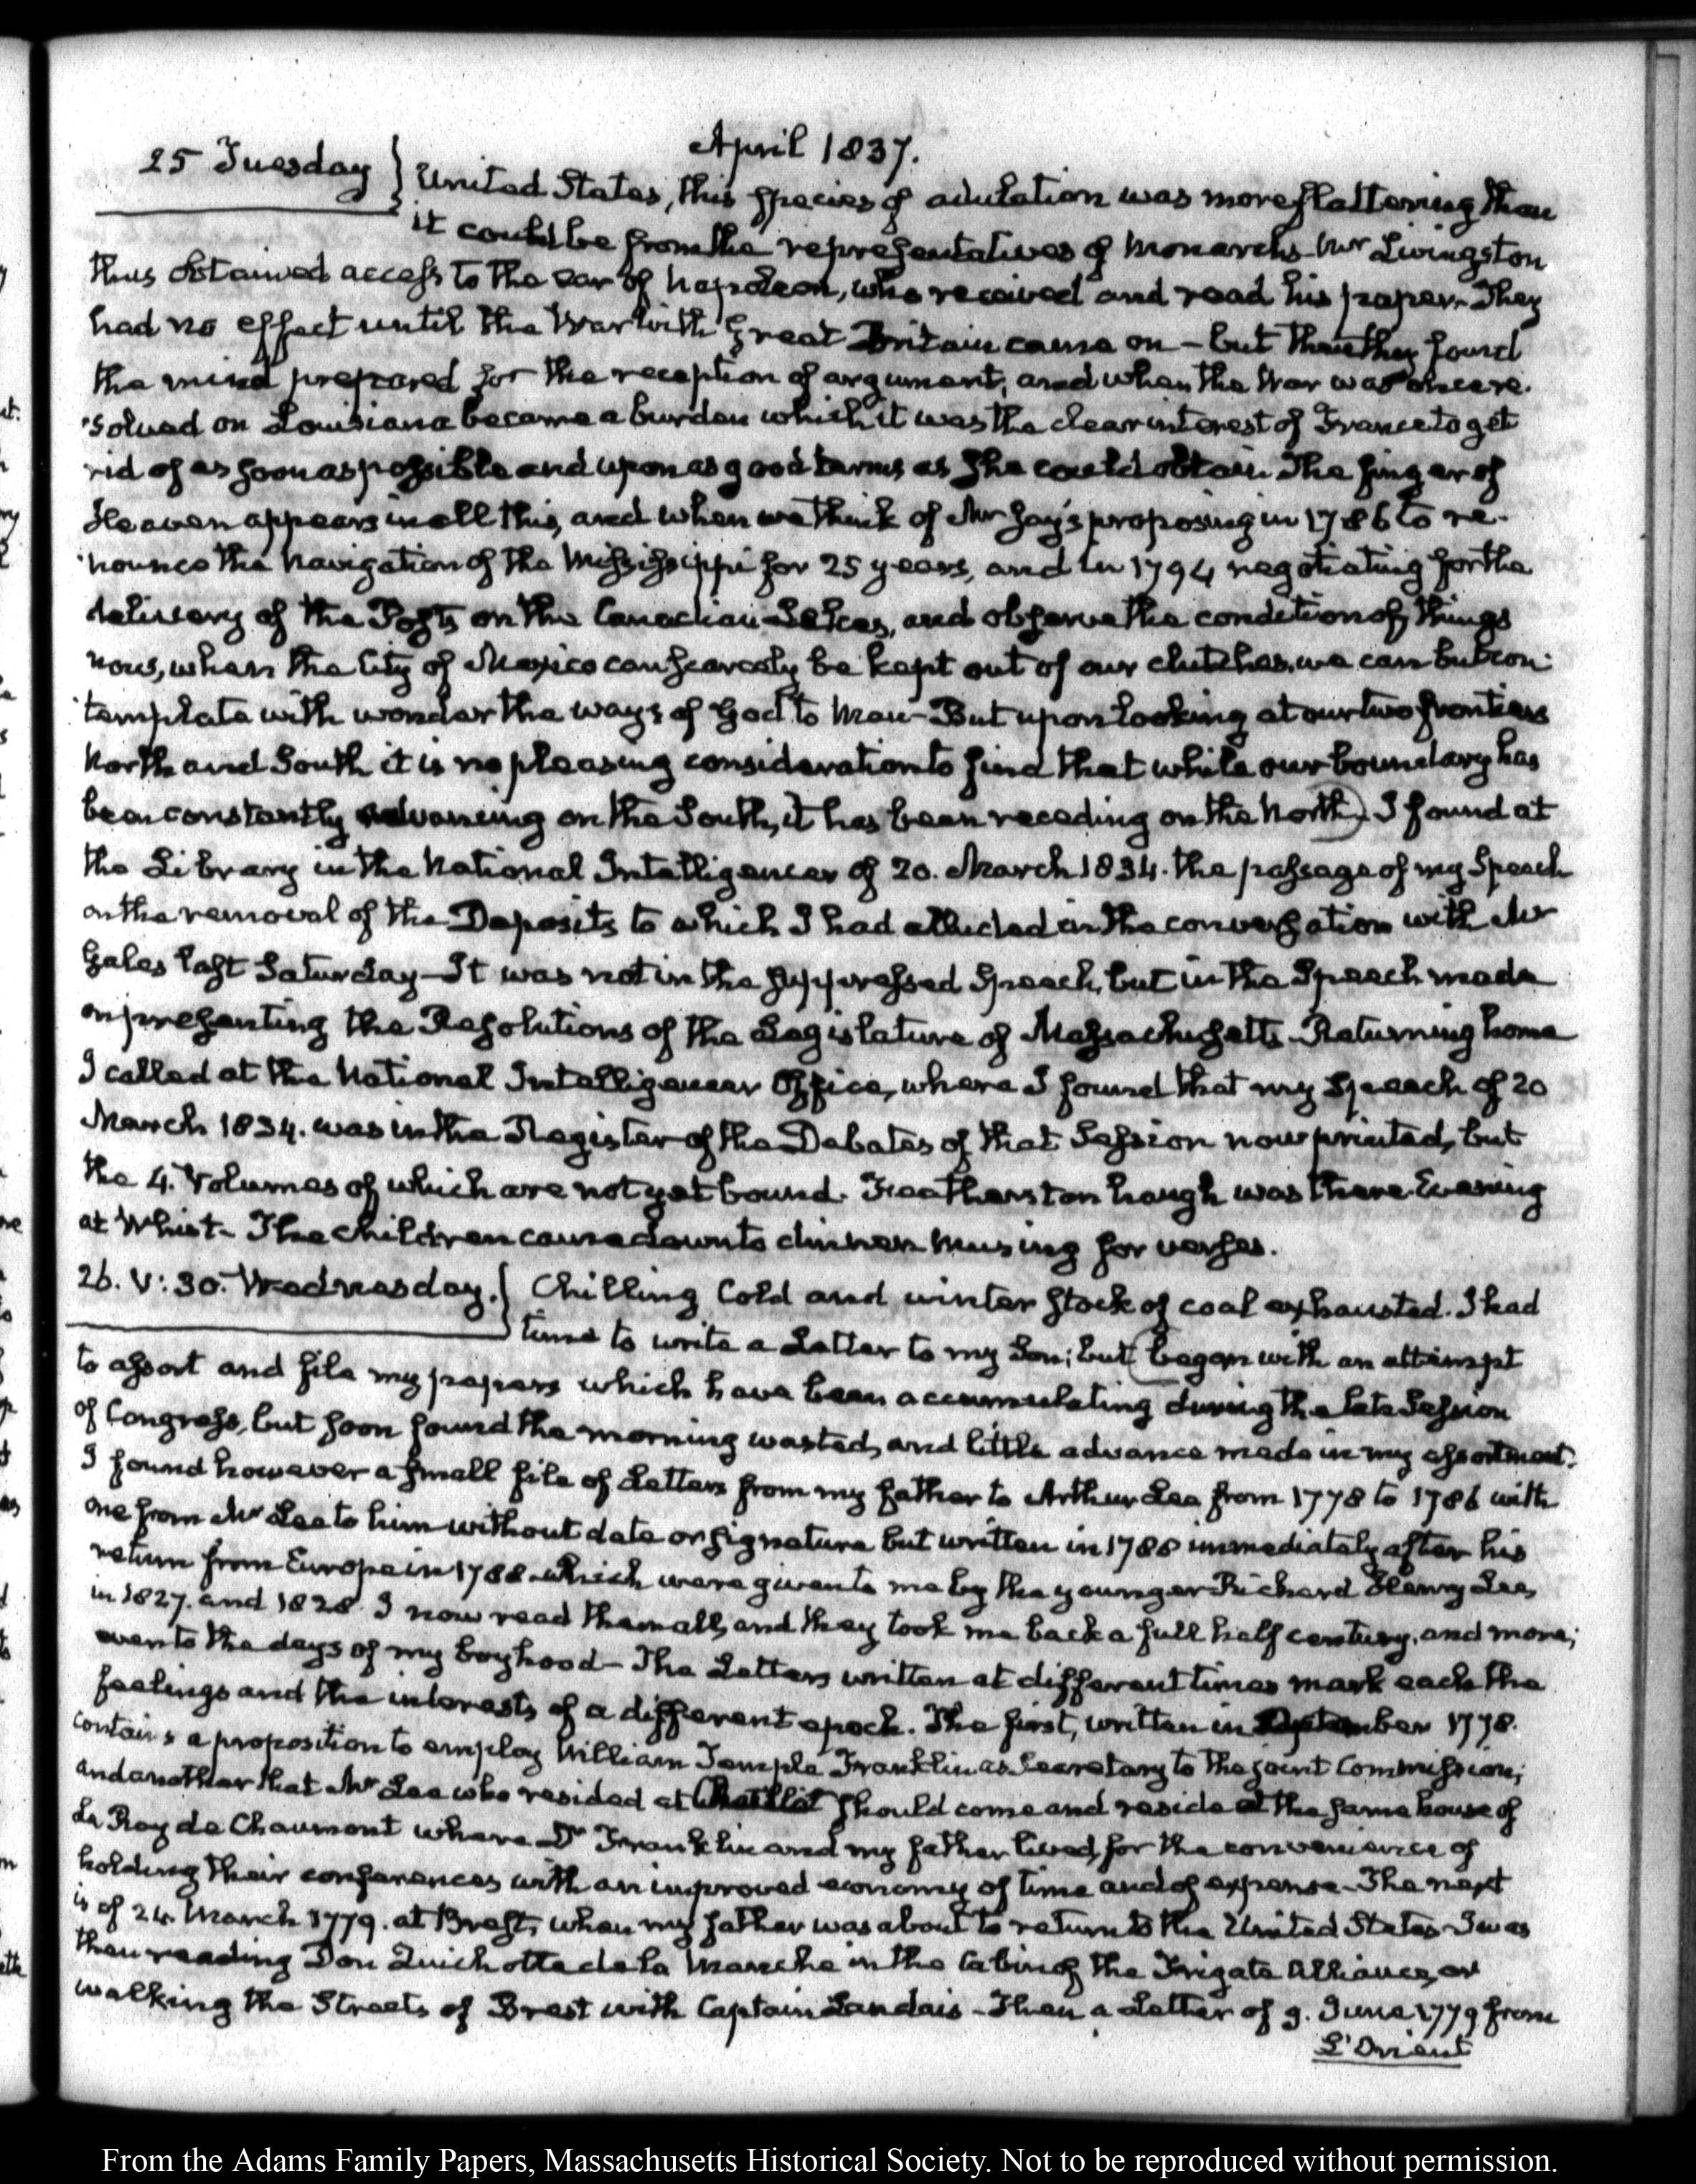 April 1837.
25 Tuesday } United States, this species of adulation was more flattering than
it could be from the representatives of Monarchs. Mr Livingston
thus obtained access to the ear of Napoleon, who received and read his paper. They
had no effect until the War with Great Britain came on – but then they found
the mind prepared for the reception of argument, and when the War was once re-
-solved on Louisiana became a burden which it was the clear interest of France to get
rid of as soon as possible and upon as good terms as she could obtain. The finger of
Heaven appears in all this, and when we think of Mr Jay's proposing in 1786 to re-
-nounce the navigation of the Mississippi for 25 years, and in 1794 negotiating for the
delivery of the Posts on the Canadian Lakes, and observe the condition of things
now, when the City of Mexico can scarcely be kept out of our clutches, we can but con-
-template with wonder the ways of God to Man – But upon looking at our two frontiers
North and South it is no pleasing consideration to find that while our boundary has
been constantly advancing on the South, it has been receding on the North) I found at
the Library in the National Intelligencer of 20. March 1834. the passage of my Speech
on the removal of the Deposits to which I had alluded in the conversation with Mr
Gales last Saturday – It was not in the suppressed Speech, but in the Speech made
on presenting the Resolutions of the Legislature of Massachusetts – Returning home
I called at the National Intelligencer Office, where I found that my Speech of 20
March 1834. was in the Register of the Debates of that Session now printed, but
the 4. Volumes of which are not yet bound. Featherstonhaugh was there. Evening
at Whist – The children came down to dinner. Musing for verses.
26. V: 30. Wednesday. } Chilling Cold and winter stock of coal exhausted. I had
time to write a Letter to my Son; but (began with an attempt
to assort and file my papers which have been accumulating during the late Session
of Congress, but soon found the morning wasted, and little advance made in my assortment.
I found however a small file of Letters from my father to Arthur Lee from 1778 to 1786 with
one from Mr Lee to him without date or signature but written in 1788 immediately after his
return from Europe in 1788 which were given to me by the younger Richard Henry Lee,
in 1827. and 1828. I now read them all, and they took me back a full half century, and more;
even to the days of my boyhood – The Letters written at different times mark each the
feelings and the interests of a different epoch. The first, written in September 1778.
contains a proposition to employ William Temple Franklin as Secretary to the joint Commission;
and another that Mr Lee who resided at Chaillot should come and reside at the same house of
Le Roy de Chaumont where Dr Franklin and my father lived, for the convenience of
holding their conferences with an improved economy of time and of expense – The next
is of 24. March 1779. at Brest, when my father was about to return to the United States – I was
then reading Don Quichotte de la Manche in the Cabin of the Frigate Alliance, or
walking the Streets of Brest with Captain Landais – Then a Letter of 9. June 1779 from
L'Orient
From the Adams Family Papers, Massachusetts Historical Society. Not to be reproduced without permission.